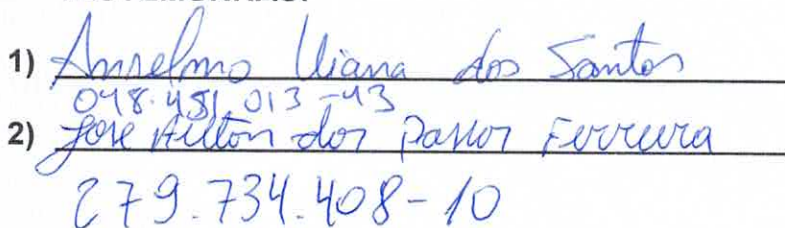 1) Anselmo Viana dos Santos
048.451.013-43
2) José Ailton dos Passos Ferreira
279.734.408-10